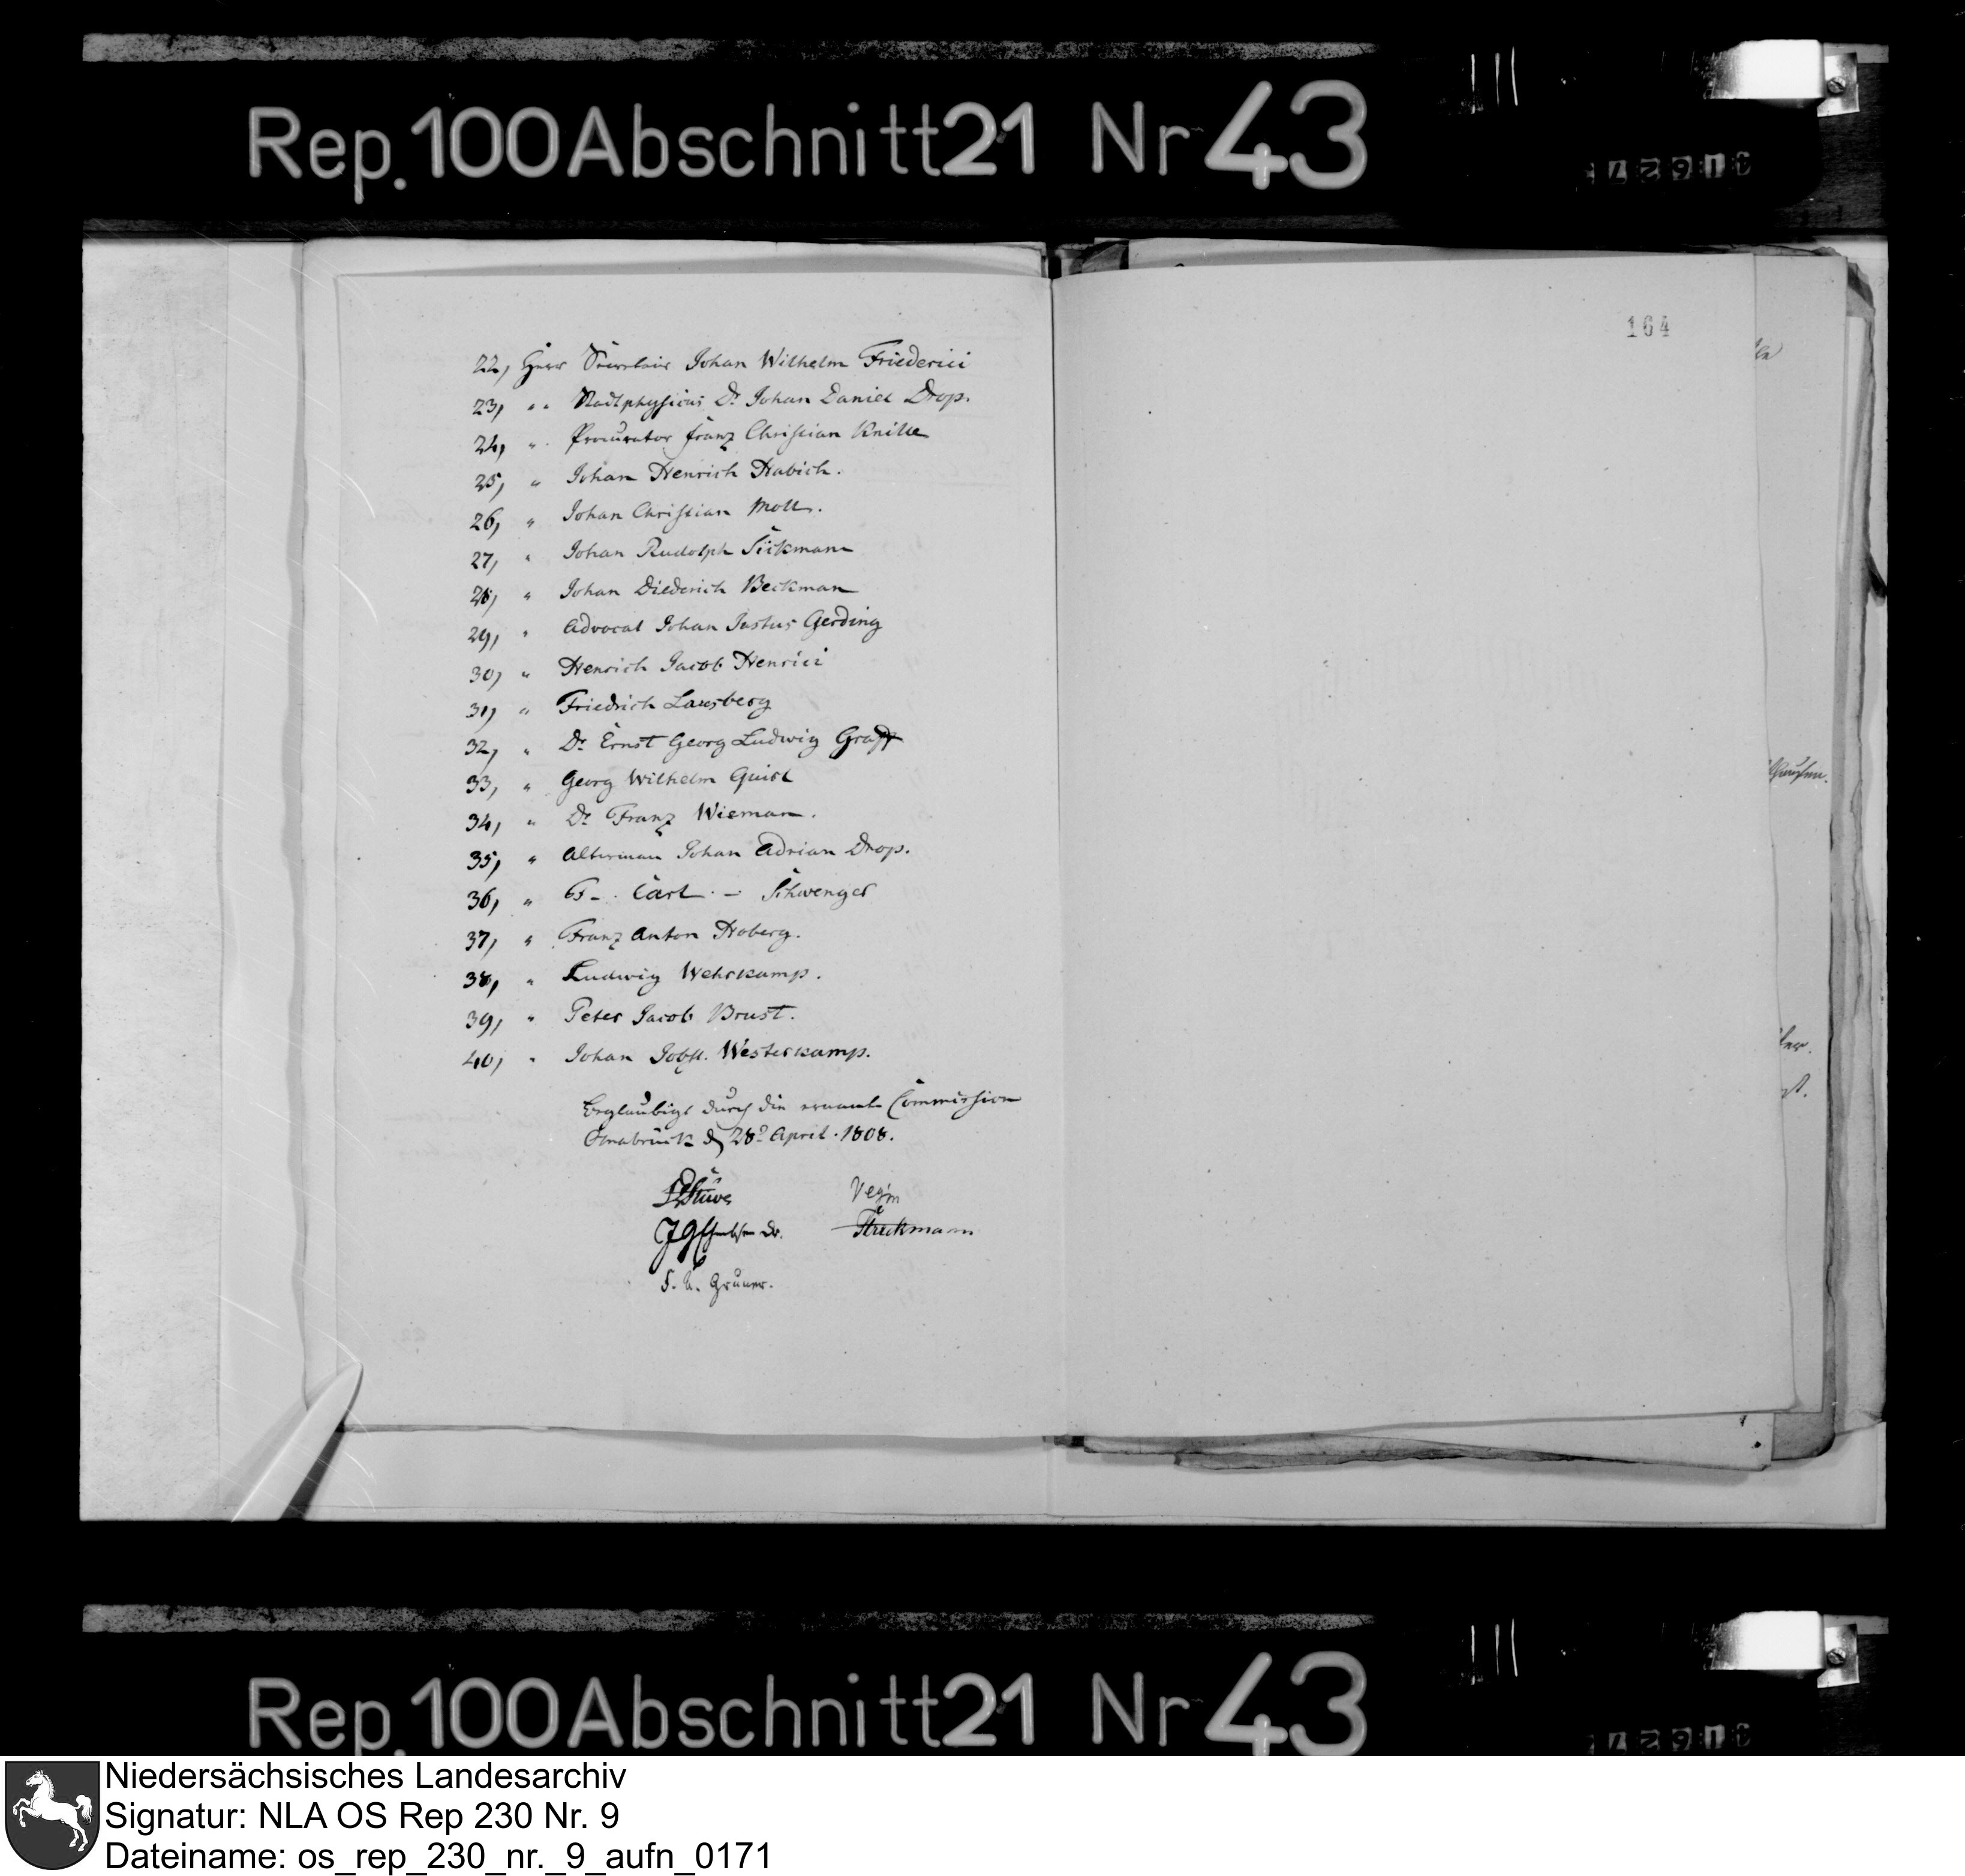 Rep. 100 Abschnitt 21 Nr 43
164
22, Herr Secretair Johan Wilhelm Friederici
23, " " Stadtphysicus Dr Johan Daniel Drop.
24, " Procurator Franz Christian Knille
25, " Johan Henrich Habich.
26, " Johan Christian Moll.
27, " Johan Rudolph Sickmann
28, " Johan Diederich Beckman
29, " Advocat Johan Justus Gerding
30, " Henrich Jacob Henrici
31, " Friedrich Lansberg
32, " Dr Ernst Georg Ludwig Graff
33, " Georg Wilhelm Quirl
34, " Dr Franz Wieman.
35, " Alterman Johan Adrian Drop.
36, " F-. Carl. - Schwenger
37, " Franz Anton Hoberg.
38, " Ludwig Wehrkamp.
39, " Peter Jacob Brust.
40, " Johan Jobst. Westerkamp.
Beglaubigt durch die ernante Commission
Osnabrück d 28t April. 1808.
Stüve Vezin
JG Dr. Struckmann
Gruner.
Rep. 100 Abschnitt 21 Nr 43
Niedersächsisches Landesarchiv
Signatur: NLA OS Rep 230 Nr. 9
Dateiname: os_rep_230_nr._9_aufn_0171